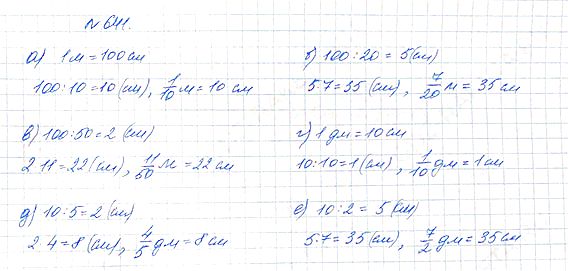 № 641.
а) 1 м = 100 см
100 : 10 = 10 (см), 1/10 м = 10 см
б) 100 : 20 = 5 (см)
5 · 7 = 35 (см), 7/20 м = 35 см
в) 100 : 50 = 2 (см)
2 · 11 = 22 (см), 11/50 м = 22 см
г) 1 дм = 10 см
10 : 10 = 1 (см), 1/10 дм = 1 см
д) 10 : 5 = 2 (см)
2 · 4 = 8 (см), 4/5 дм = 8 см
е) 10 : 2 = 5 (см)
5 · 7 = 35 (см), 7/2 дм = 35 см